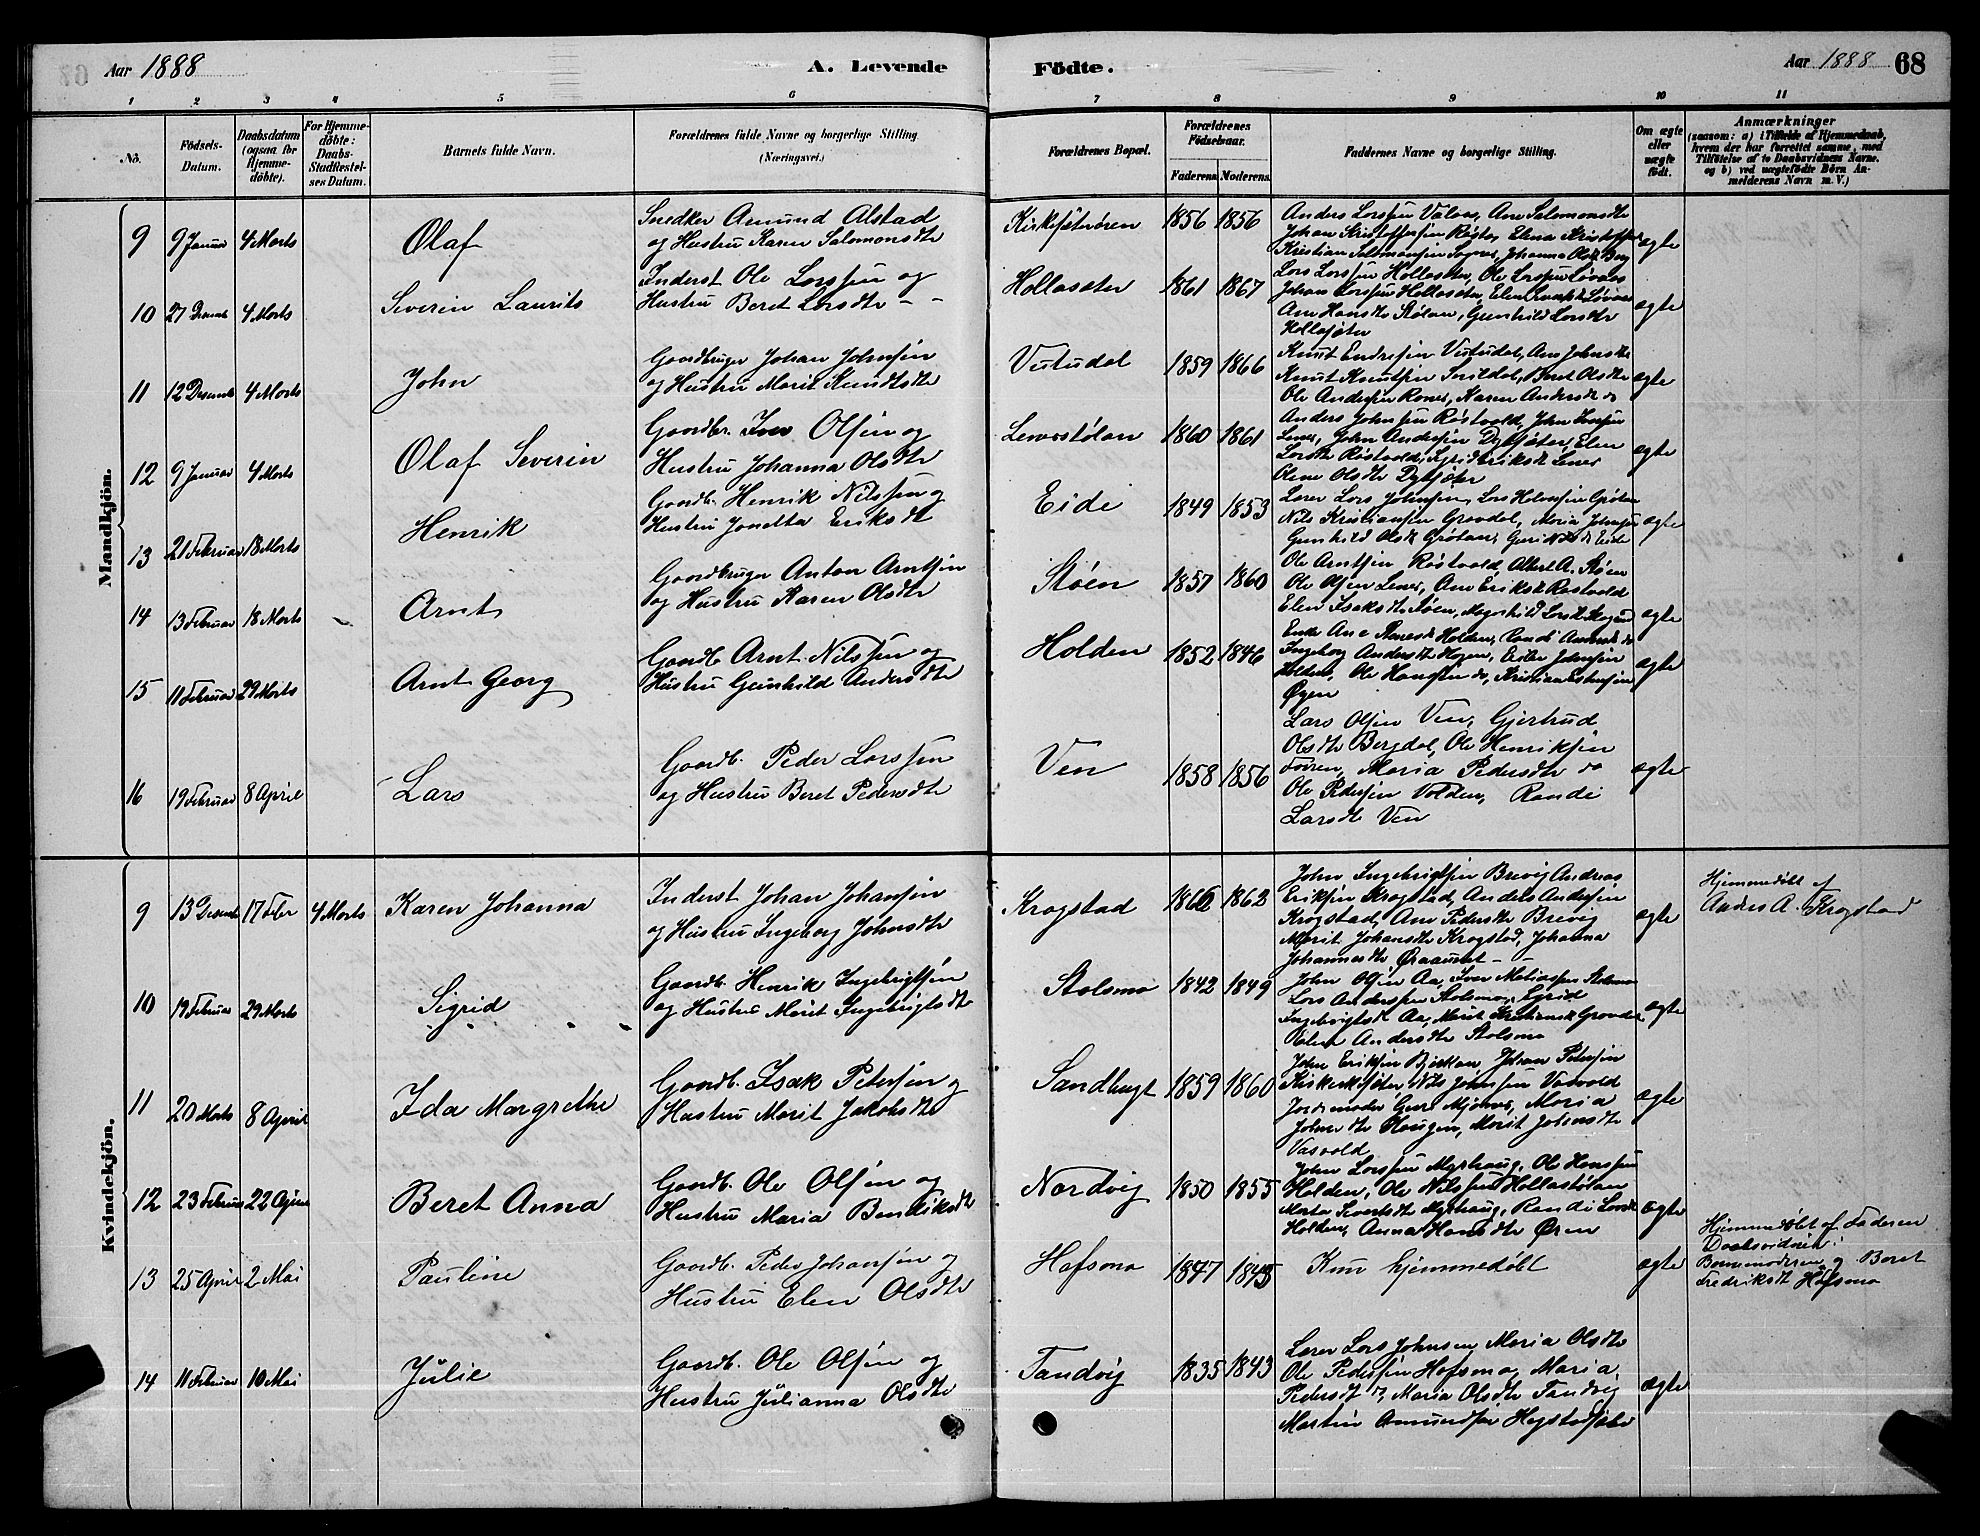 Aar 1888
A. Levende
Födte.
Aar 1888
68
1 2 3 4 5 6 7 8 9 10 11
No.
Födsels-Datum.
Daabsdatum (ogsaa for Hjemme-döbte).
For Hjemme-döbte: Daabs-Stadfæstel-ses Datum.
Barnets fulde Navn.
Forældrenes fulde Navne og borgerlige Stilling. (Næringsvei.)
Forældrenes Bopæl.
Forældrenes Födselsaar.
Faderens Moderens
Faddernes Navne og borgerlige Stilling.
Om ægte eller uægte födt.
Anmærkninger
(saasom: a) i Tilfælde af Hjemmedaab, hvem der har forrettet samme, med Tilföielse af to Daabsvidners Navne. og b) ved uægtefödte Börn An-melderens Navn m. V.)
Mandkjön.
9 9 Januar 4 Marts Olaf
Snedker Amund Alstad
og Hustru Karen Salomonsdtr
Kirkesæterøren 1856 1856
Anders Larssen Valøes, Ane Salomonsdtr
Johan Kristoffersen Røsta, Elen Kristoffers
Kristian Salomonsen Sognes, Johanna Olsdtr Berg
ægte
10 27 Desemb 4 Marts Severin Laurits
Inderst Ole Larssen og
Hustru Beret Larsdtr - -
Hollasæter 1861 1867
Lars Larssen Hollasæter, Ole Larssen Løvaas
Johan Larssen Hollasæter, Elen Løvaas
Ane Hansdtr Stølan, Gunhild Larsdtr
Hollasæter
ægte
11 12 Desemb 4 Marts John
Gaardbruger Johan Johnsen
og Hustru Marit Knudtsdtr
Vistudal 1859 1866
Knut Endresen Vistudal, Ane Johnsdtr
Knut Knutsen Snildal, Beret Olsdtr
Ole Andersen Rones, Karen Andersdtr do
ægte
12 9 Januar 4 Marts Olaf Severin
Gaardbr. Iver Olsen og
Hustru Johanna Olsdtr
Lenesstølan 1860 1861
Anders Johnsen Røstvold, John Iversen
Lenes, John Andersen Dybsæter, Elen
Larsdtr Røstvold, Sigrid Eriksdtr Lenes
Olene Olsdtr Dybsæter
ægte
13 21 Februar 18 Marts Henrik
Gaardb. Henrik Nilssen og
Hustru Jonetta Eriksdtr
Eide 1849 1853
Lærer Lars Johnsen, Lars Halvorsen Grøtan
Nils Kristiansen Gravdal, Maria Johnsen
Gunhild Olsdtr Grøtan, Guri Nilsdtr Eide
ægte
14 13 Februar 18 Marts Arnt
Gaardbruger Anton Arntsen
og Hustru Karen Olsdtr
Støen 1857 1860
Ole Arntsen Røstvold, Albert A. Støen
Ole Olsen Lenes, Ane Eriksdtr Røstvold
Elen Isaksdtr Støen, Magnhild Larsdtr
ægte
15 11 Februar 29 Marts Arnt Georg
Gaardb. Arnt Nilssen og
Hustru Gunhild Andersdtr
Holden 1852 1846
Enke Ane Holden, Randi do
Ingeborg Andersdtr Hogen, Johnsen
Holden, Ole Hansen do, Kristian Estensen
Øyen
ægte
16 19 Februar 8 April Lars
Gaardb. Peder Larssen
og Hustru Beret Pedersdtr
Ven 1858 1856
Lars Olsen Ven, Gjertrud
Olsdtr Bergdal, Ole Henriksen
Maria Pedersdtr do
Ole Pedersen Volden, Randi
Larsdtr Ven
ægte
Kvindekjön.
9 13 Desemb 17 Febr 4 Marts Karen Johanna
Inderst Johan Johansen
og Hustru Ingeborg Johnsdtr
Krogstad 1862
John Ingebrigtsen Brevig, Andreas
Eriksen Krogstad, Anders Andersen
Krogstad, Ane Pedersdtr Brevig
Marit Johansdtr Krogstad, Johanna
Johannesdtr
ægte
Hjemmedøbt af
Anders A. Krogstad
10 19 Februar 29 Marts Sigrid
Gaardb. Henrik Ingebrigtsen
og Hustru Marit Ingebrigtsdtr
Stolsmo 1842 1849
John Olsen Aa, Iver Matiassen Stolsmo
Lars Anderssen Stolsmo, Sigrid
Ingebrigtsdtr Aa, Marit Kristiansdtr Gravdal
Elen Andersdtr Stolsmo
ægte
11 20 Marts 8 April Ida Margrethe
Gaardb. Isak Petersen og
Hustru Marit Jakobsdtr
Sandbugt 1859 1860
John Eriksen Bjerkan, Johan Petersen
Kirkeksæter, Nils Johnsen Vasvold
Jordmoder Guri Mjønes, Maria
Johnsdtr Haugen, Marit Johansdtr
Vasvold
ægte
12 23 Februar 22 April Beret Anna
Gaardb. Ole Olsen og
Hustru Maria Bendiksdtr
Nordvig 1850 1855
John Larssen Myrhaug, Ole Hanssen
Holden, Ole Nilssen Hollastølan
Marta Sivertsdtr Myrhaug, Randi Larsdtr
Holden, Anna Hansdtr Øren
ægte
13 25 April 2 Mai Pauline
Gaardb. Peder Johansen og
Hustru Elen Olsdtr
Hafsmo 1847 1845
Kun hjemmedøbt
ægte
Hjemmedøbt af Faderen
Daabsvidner:
Barnemoderen og Beret
Fredriksdtr Hafsmo
14 11 Februar 10 Mai Julie
Gaardb. Ole Olsen og
Hustru Julianna Olsdtr
Tandvig 1835 1843
Lærer Lars Johnsen, Maria Olsdtr
Ole Pedersen Hafsmo, Maria
Pedersdtr do, Maria Olsdtr Tandvig
Martin Amundsen Hegstadsæter
ægte